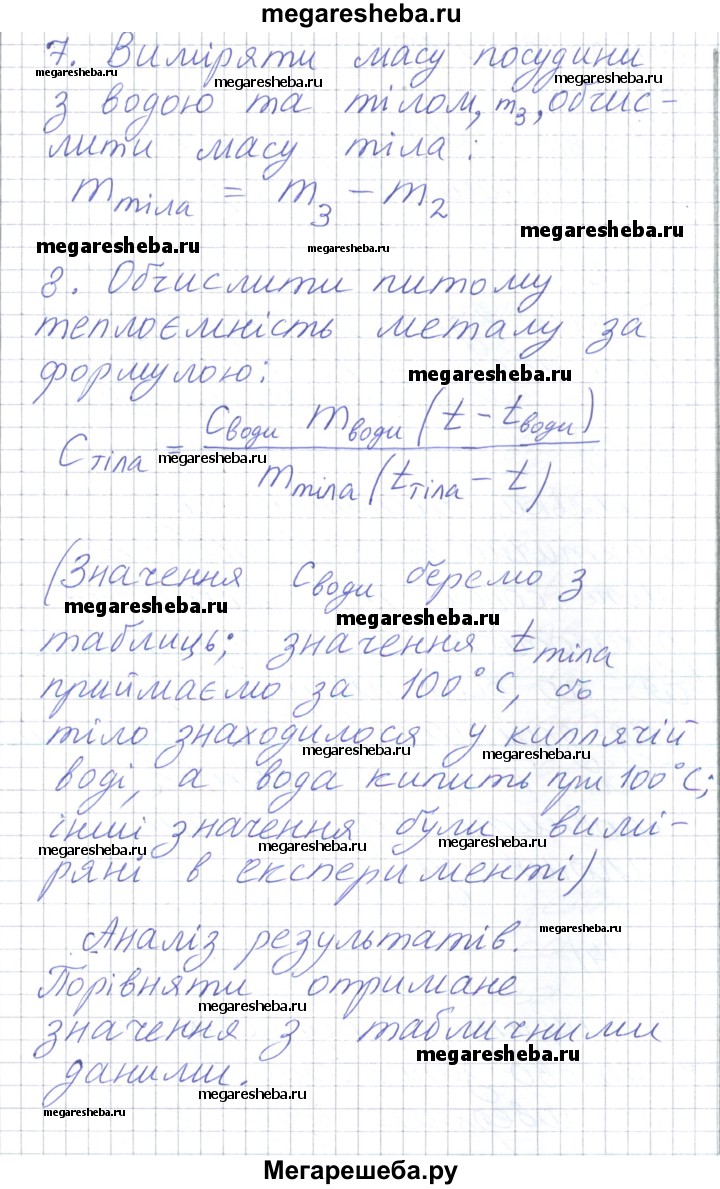 megaresheba.ru
7. Виміряти масу посудини
megaresheba.ru megaresheba.ru megaresheba.ru
з водою та тілом, m₃, обчис-
лити масу тіла:
m тіла = m₃ - m₂
megaresheba.ru megaresheba.ru megaresheba.ru
8. Обчислити питому
теплоємність металу за
формулою:
megaresheba.ru
C тіла = C води m води (t - t води) / m тіла (t тіла - t)
megaresheba.ru
(Значення C води беремо з
megaresheba.ru megaresheba.ru
таблиць; значення t тіла
приймаємо за 100°C, бо
тіло знаходилося у киплячій
megaresheba.ru megaresheba.ru
воді, а вода кипить при 100°C;
інші значення були вимі-
megaresheba.ru megaresheba.ru megaresheba.ru
ряні в експерименті)
Аналіз результатів.
megaresheba.ru
Порівняти отримане
megaresheba.ru
значення з табличними
megaresheba.ru
даними.
megaresheba.ru megaresheba.ru
Мегарешеба.ру